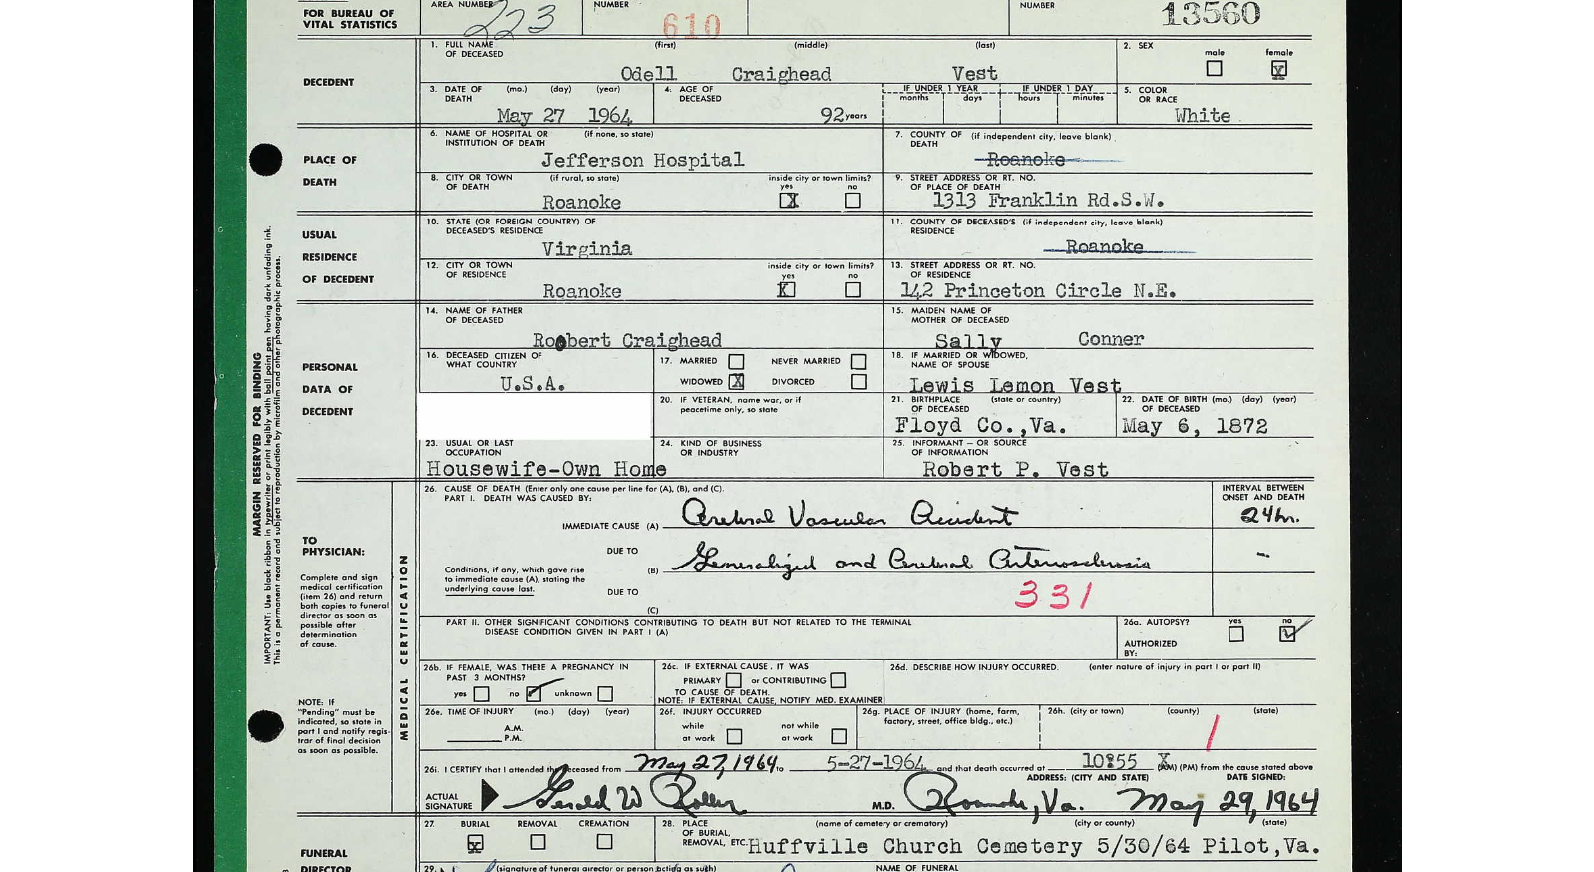 FOR BUREAU OF VITAL STATISTICS
AREA NUMBER 223
NUMBER 610
NUMBER 13560
DECEDENT
1. FULL NAME OF DECEASED (first) (middle) (last)
Odell Craighead Vest
2. SEX male female X
3. DATE OF DEATH (mo.) (day) (year)
May 27 1964
4. AGE OF DECEASED
92 years
IF UNDER 1 YEAR months days
IF UNDER 1 DAY hours minutes
5. COLOR OR RACE
White
PLACE OF DEATH
6. NAME OF HOSPITAL OR INSTITUTION OF DEATH (if none, so state)
Jefferson Hospital
7. COUNTY OF DEATH (if independent city, leave blank)
Roanoke
8. CITY OR TOWN OF DEATH (if rural, so state) inside city or town limits? yes X no
Roanoke
9. STREET ADDRESS OR RT. NO. OF PLACE OF DEATH
1313 Franklin Rd.S.W.
USUAL RESIDENCE OF DECEDENT
10. STATE (OR FOREIGN COUNTRY) OF DECEASED'S RESIDENCE
Virginia
11. COUNTY OF DECEASED'S RESIDENCE (if independent city, leave blank)
Roanoke
12. CITY OR TOWN OF RESIDENCE inside city or town limits? yes X no
Roanoke
13. STREET ADDRESS OR RT. NO. OF RESIDENCE
142 Princeton Circle N.E.
PERSONAL DATA OF DECEDENT
14. NAME OF FATHER OF DECEASED
Robert Craighead
15. MAIDEN NAME OF MOTHER OF DECEASED
Sally Conner
16. DECEASED CITIZEN OF WHAT COUNTRY
U.S.A.
17. MARRIED NEVER MARRIED
WIDOWED X DIVORCED
18. IF MARRIED OR WIDOWED, NAME OF SPOUSE
Lewis Lemon Vest
20. IF VETERAN, name war, or if peacetime only, so state
21. BIRTHPLACE OF DECEASED (state or country)
Floyd Co.,Va.
22. DATE OF BIRTH (mo.) (day) (year) OF DECEASED
May 6, 1872
23. USUAL OR LAST OCCUPATION
Housewife-Own Home
24. KIND OF BUSINESS OR INDUSTRY
25. INFORMANT – OR SOURCE OF INFORMATION
Robert P. Vest
MARGIN RESERVED FOR BINDING
IMPORTANT: Use black ribbon in typewriter or print legibly with ball point pen having dark unfading ink.
This is a permanent record and subject to reproduction by microfilm and other photographic process.
TO PHYSICIAN:
Complete and sign medical certification (item 26) and return both copies to funeral director as soon as possible after determination of cause.
NOTE: IF "Pending" must be indicated, so state in part I and notify registrar of final decision as soon as possible.
MEDICAL CERTIFICATION
26. CAUSE OF DEATH (Enter only one cause per line for (A), (B), and (C).
PART I. DEATH WAS CAUSED BY:
INTERVAL BETWEEN ONSET AND DEATH
IMMEDIATE CAUSE (A) Cerebral Vascular Accident 24 hr.
DUE TO
Conditions, if any, which gave rise to immediate cause (A), stating the underlying cause last.
(B) Generalized and Cerebral Arteriosclerosis –
DUE TO
331
(C)
PART II. OTHER SIGNIFICANT CONDITIONS CONTRIBUTING TO DEATH BUT NOT RELATED TO THE TERMINAL DISEASE CONDITION GIVEN IN PART I (A)
26a. AUTOPSY? yes no
AUTHORIZED BY:
26b. IF FEMALE, WAS THERE A PREGNANCY IN PAST 3 MONTHS?
yes no unknown
26c. IF EXTERNAL CAUSE, IT WAS
PRIMARY or CONTRIBUTING
TO CAUSE OF DEATH.
NOTE: IF EXTERNAL CAUSE, NOTIFY MED. EXAMINER
26d. DESCRIBE HOW INJURY OCCURRED. (enter nature of injury in part I or part II)
26e. TIME OF INJURY (mo.) (day) (year)
A.M.
P.M.
26f. INJURY OCCURRED
while at work not while at work
26g. PLACE OF INJURY (home, farm, factory, street, office bldg., etc.)
26h. (city or town) (county) (state)
26i. I CERTIFY that I attended the deceased from May 27, 1964 to 5-27-1964 and that death occurred at 10:55 X (AM) (PM) from the cause stated above
ADDRESS: (CITY AND STATE) DATE SIGNED:
ACTUAL SIGNATURE Gerald W Roller M.D. Roanoke, Va. May 29, 1964
FUNERAL DIRECTOR
27. BURIAL X REMOVAL CREMATION
28. PLACE OF BURIAL, REMOVAL, ETC. (name of cemetery or crematory) (city or county) (state)
Huffville Church Cemetery 5/30/64 Pilot,Va.
29. (signature of funeral director or person acting as such) NAME OF FUNERAL